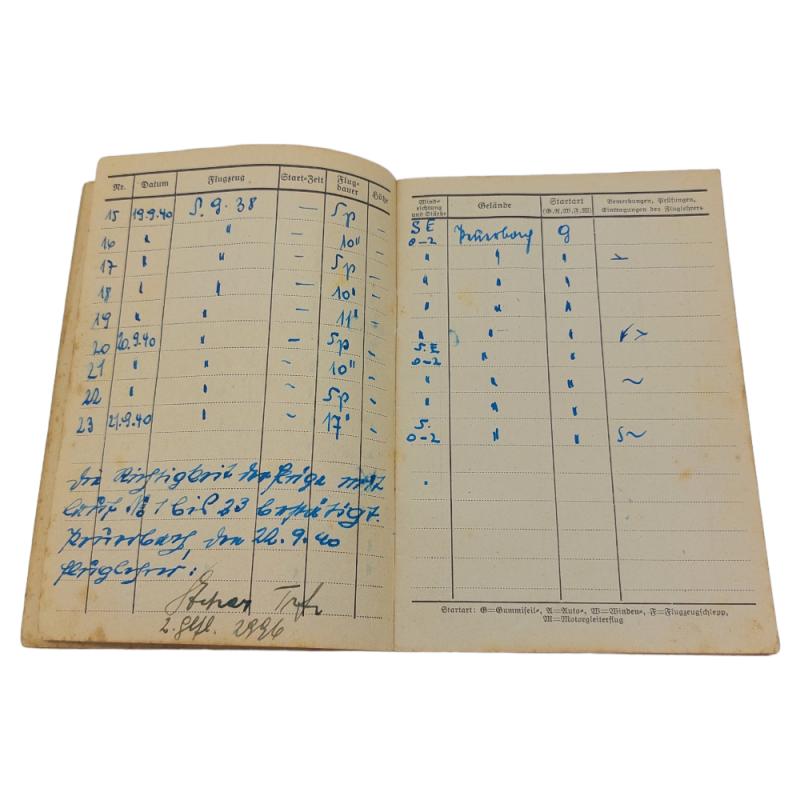 Nr. Datum Flugzeug Start-Zeit Flug-dauer Höhe
15 19.9.40 S.G.38 — Sp –
16 " " 10" –
17 " " Sp –
18 " " – 10" –
19 " " – 11" –
20 20.9.40 " – Sp –
21 " " – 10" –
22 " " – Sp –
23 21.9.40 " – 17" –
Die Richtigkeit der Flüge
lauf. No 1 bis 23 bestätigt.
Peuerbach, den 22.9.40
Fluglehrer:
2996
Wind-richtung und Stärke Gelände Startart (G.A.W.F.M) Bemerkungen, Prüfungen, Eintragungen des Fluglehrers
SE 0-2 Peuerbach G
" " "
" " "
" " "
" " "
S.E 0-2 " "
" " " ~
" " "
S. 0-2 " " S~
Startart: G=Gummiseil-, A=Auto-, W=Winden-, F=Flugzeugschlepp,
M=Motorgleiterflug